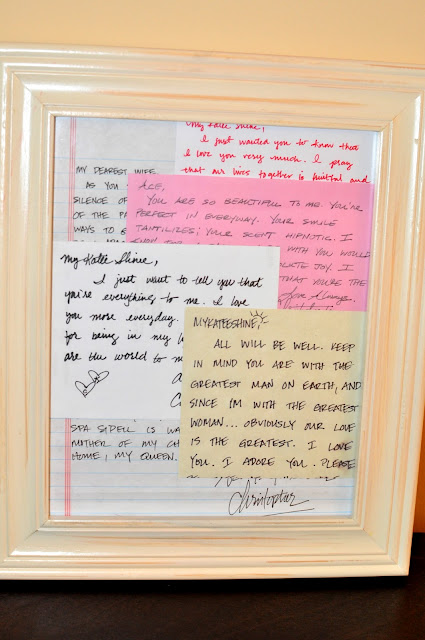 My Katee Shine,
I just wanted you to know that
I love you very much. I pray
that our lives together is fruitful and
MY DEAREST WIFE
AS YOU
SILENCE OF
OF THE PA
WAYS TO E
ACE,
YOU ARE SO BEAUTIFUL TO ME. YOU'RE
PERFECT IN EVERYWAY. YOUR SMILE
TANTILIZES; YOUR SCENT HIPNOTIC. I
WITH YOU WOULD
JOY. I
THAT YOU'RE THE
Love Always,
My Katee Shine,
I just want to tell you that
you're everything to me. I love
you more everyday.
for being in my
are the world to m
MYKATEESHINE,
ALL WILL BE WELL. KEEP
IN MIND YOU ARE WITH THE
GREATEST MAN ON EARTH, AND
SINCE I'M WITH THE GREATEST
WOMAN... OBVIOUSLY OUR LOVE
IS THE GREATEST. I LOVE
YOU. I ADORE YOU. PLEASE
SPA SIPELL IS WA
MOTHER OF MY CH
HOME, MY QUEEN.
Christopher